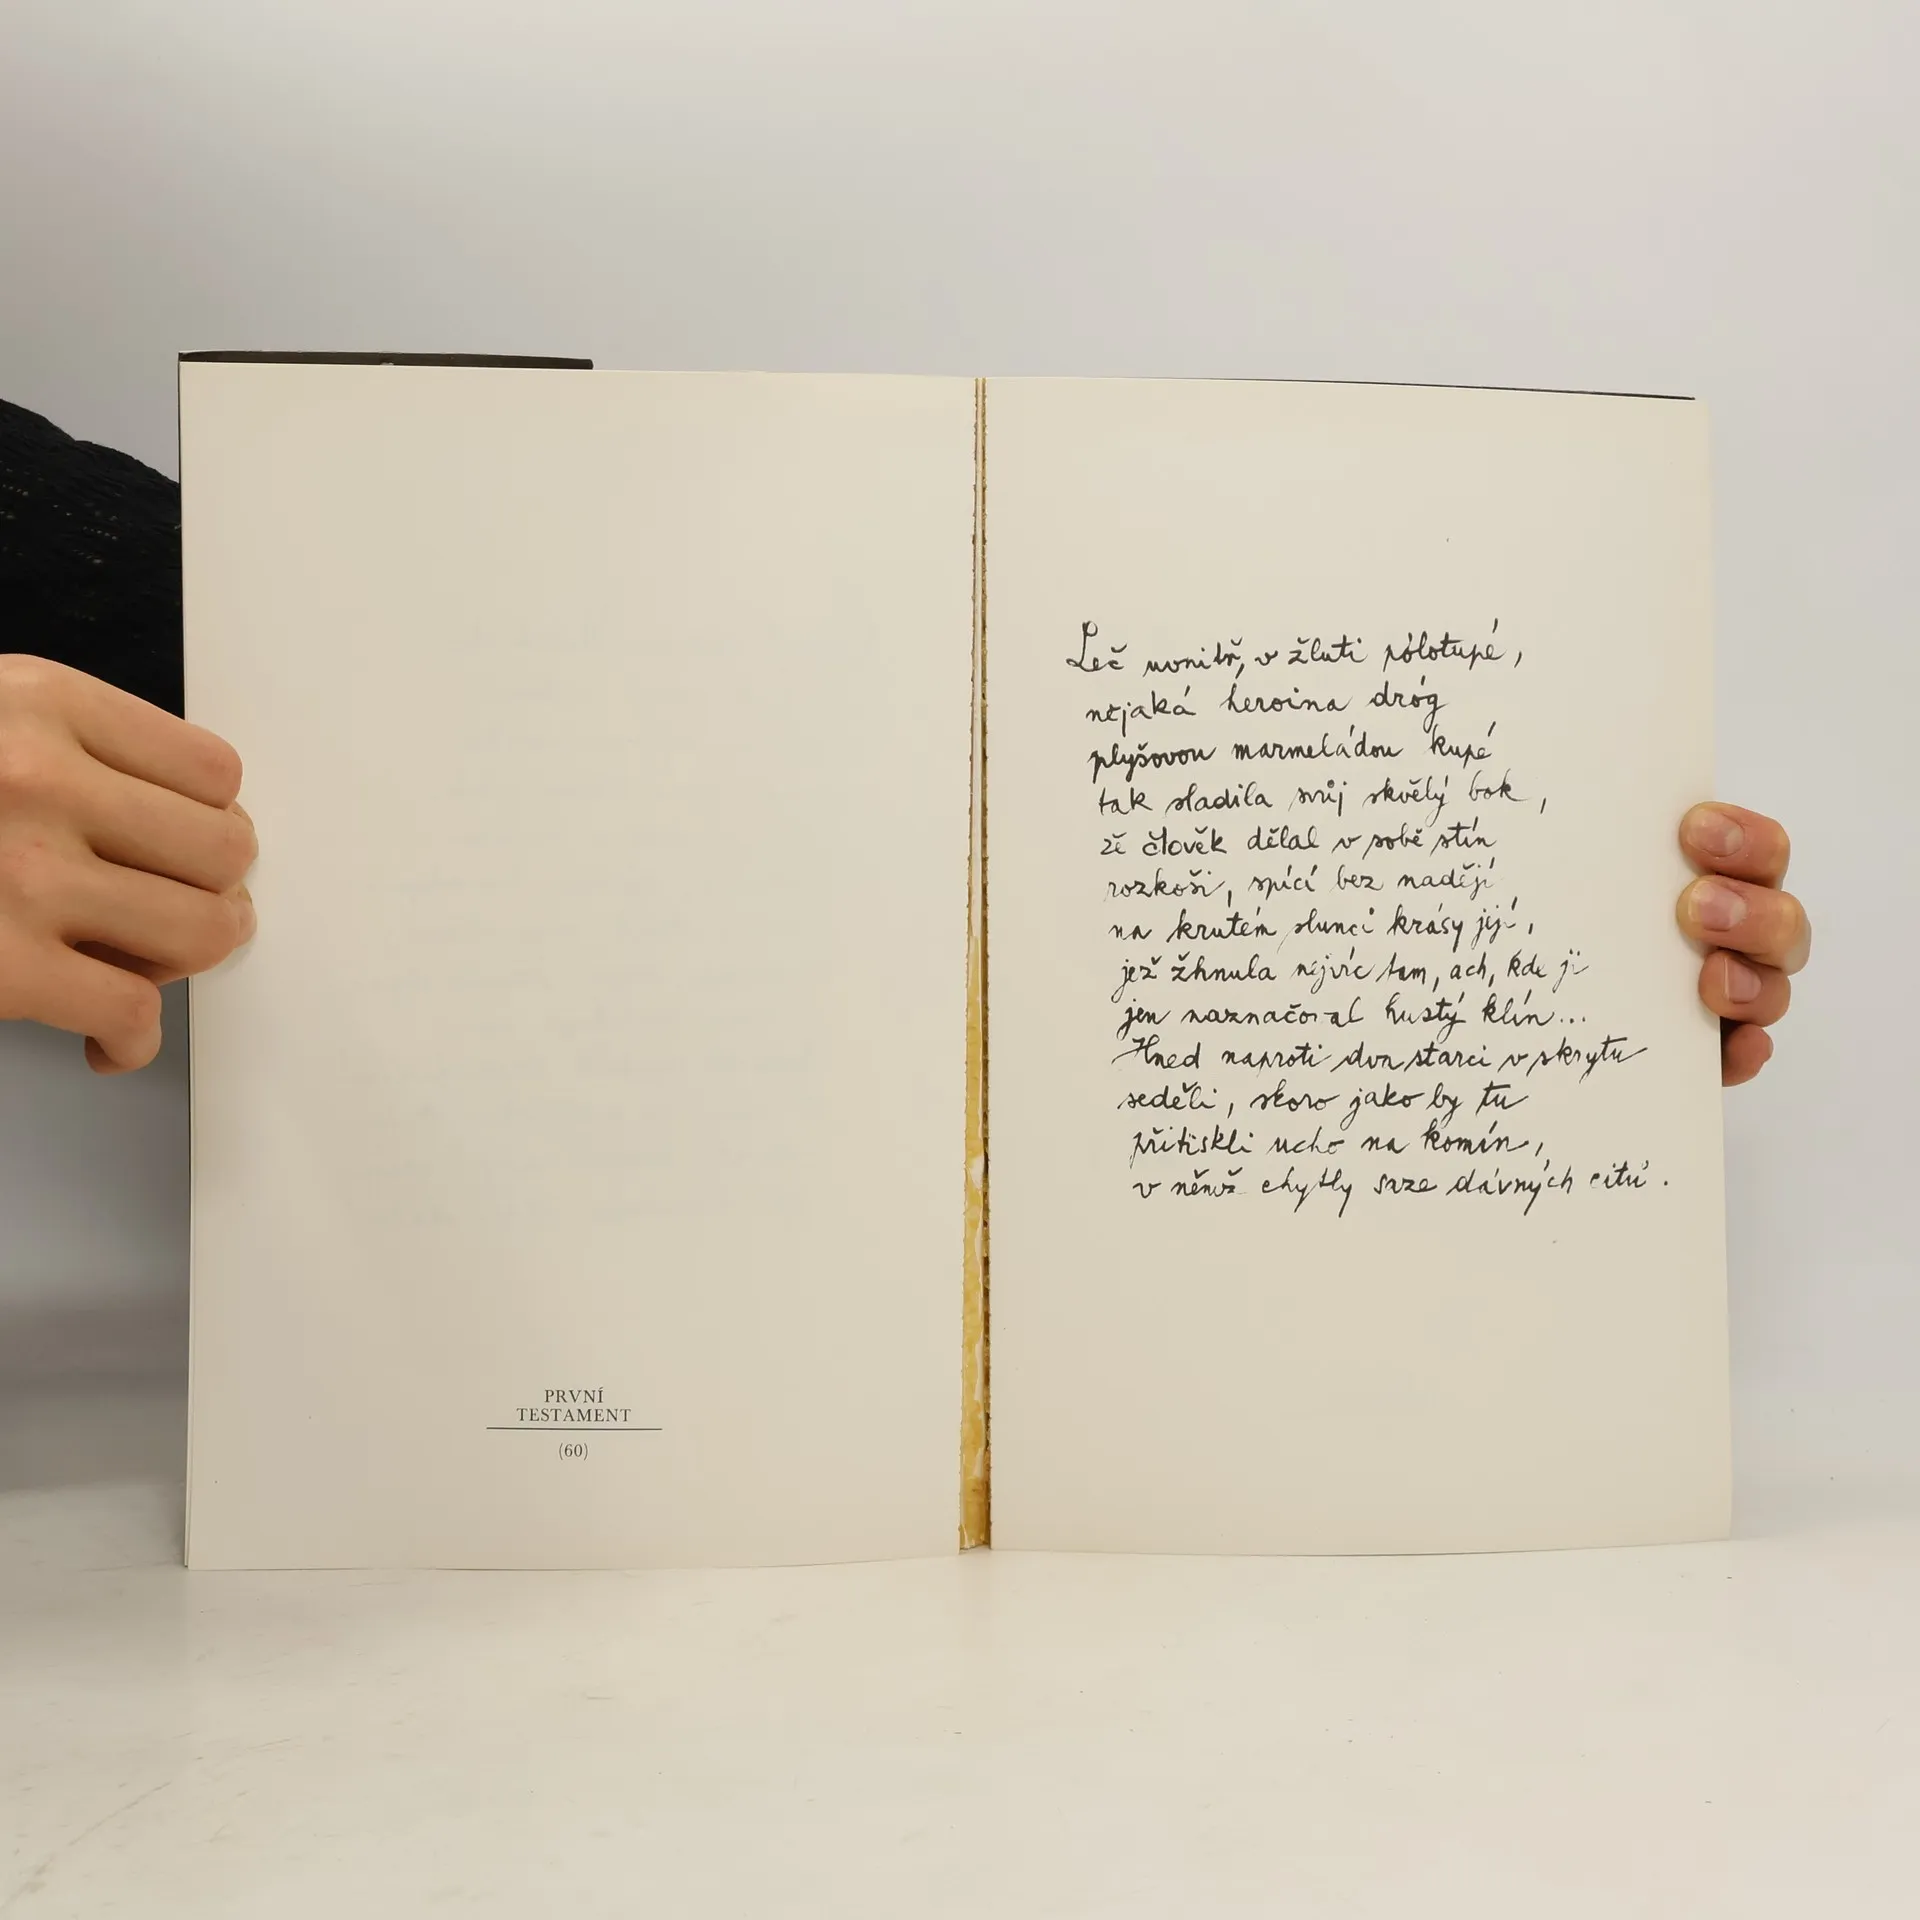 PRVNÍ
TESTAMENT
(60)
Leč uvnitř, v žluti pólotupé,
nějaká heroina dróg
plyšovou marmeládou kupé
tak sladila svůj skvělý bok,
že člověk dělal v sobě stín
rozkoši, spící bez nadějí
na krutém slunci krásy její,
jež žhnula nejvíc tam, ach, kde ji
jen naznačoval hustý klín...
Hned naproti dva starci v skrytu
seděli, skoro jako by tu
přitiskli ucho na komín,
v němž chytly saze dávných citů.